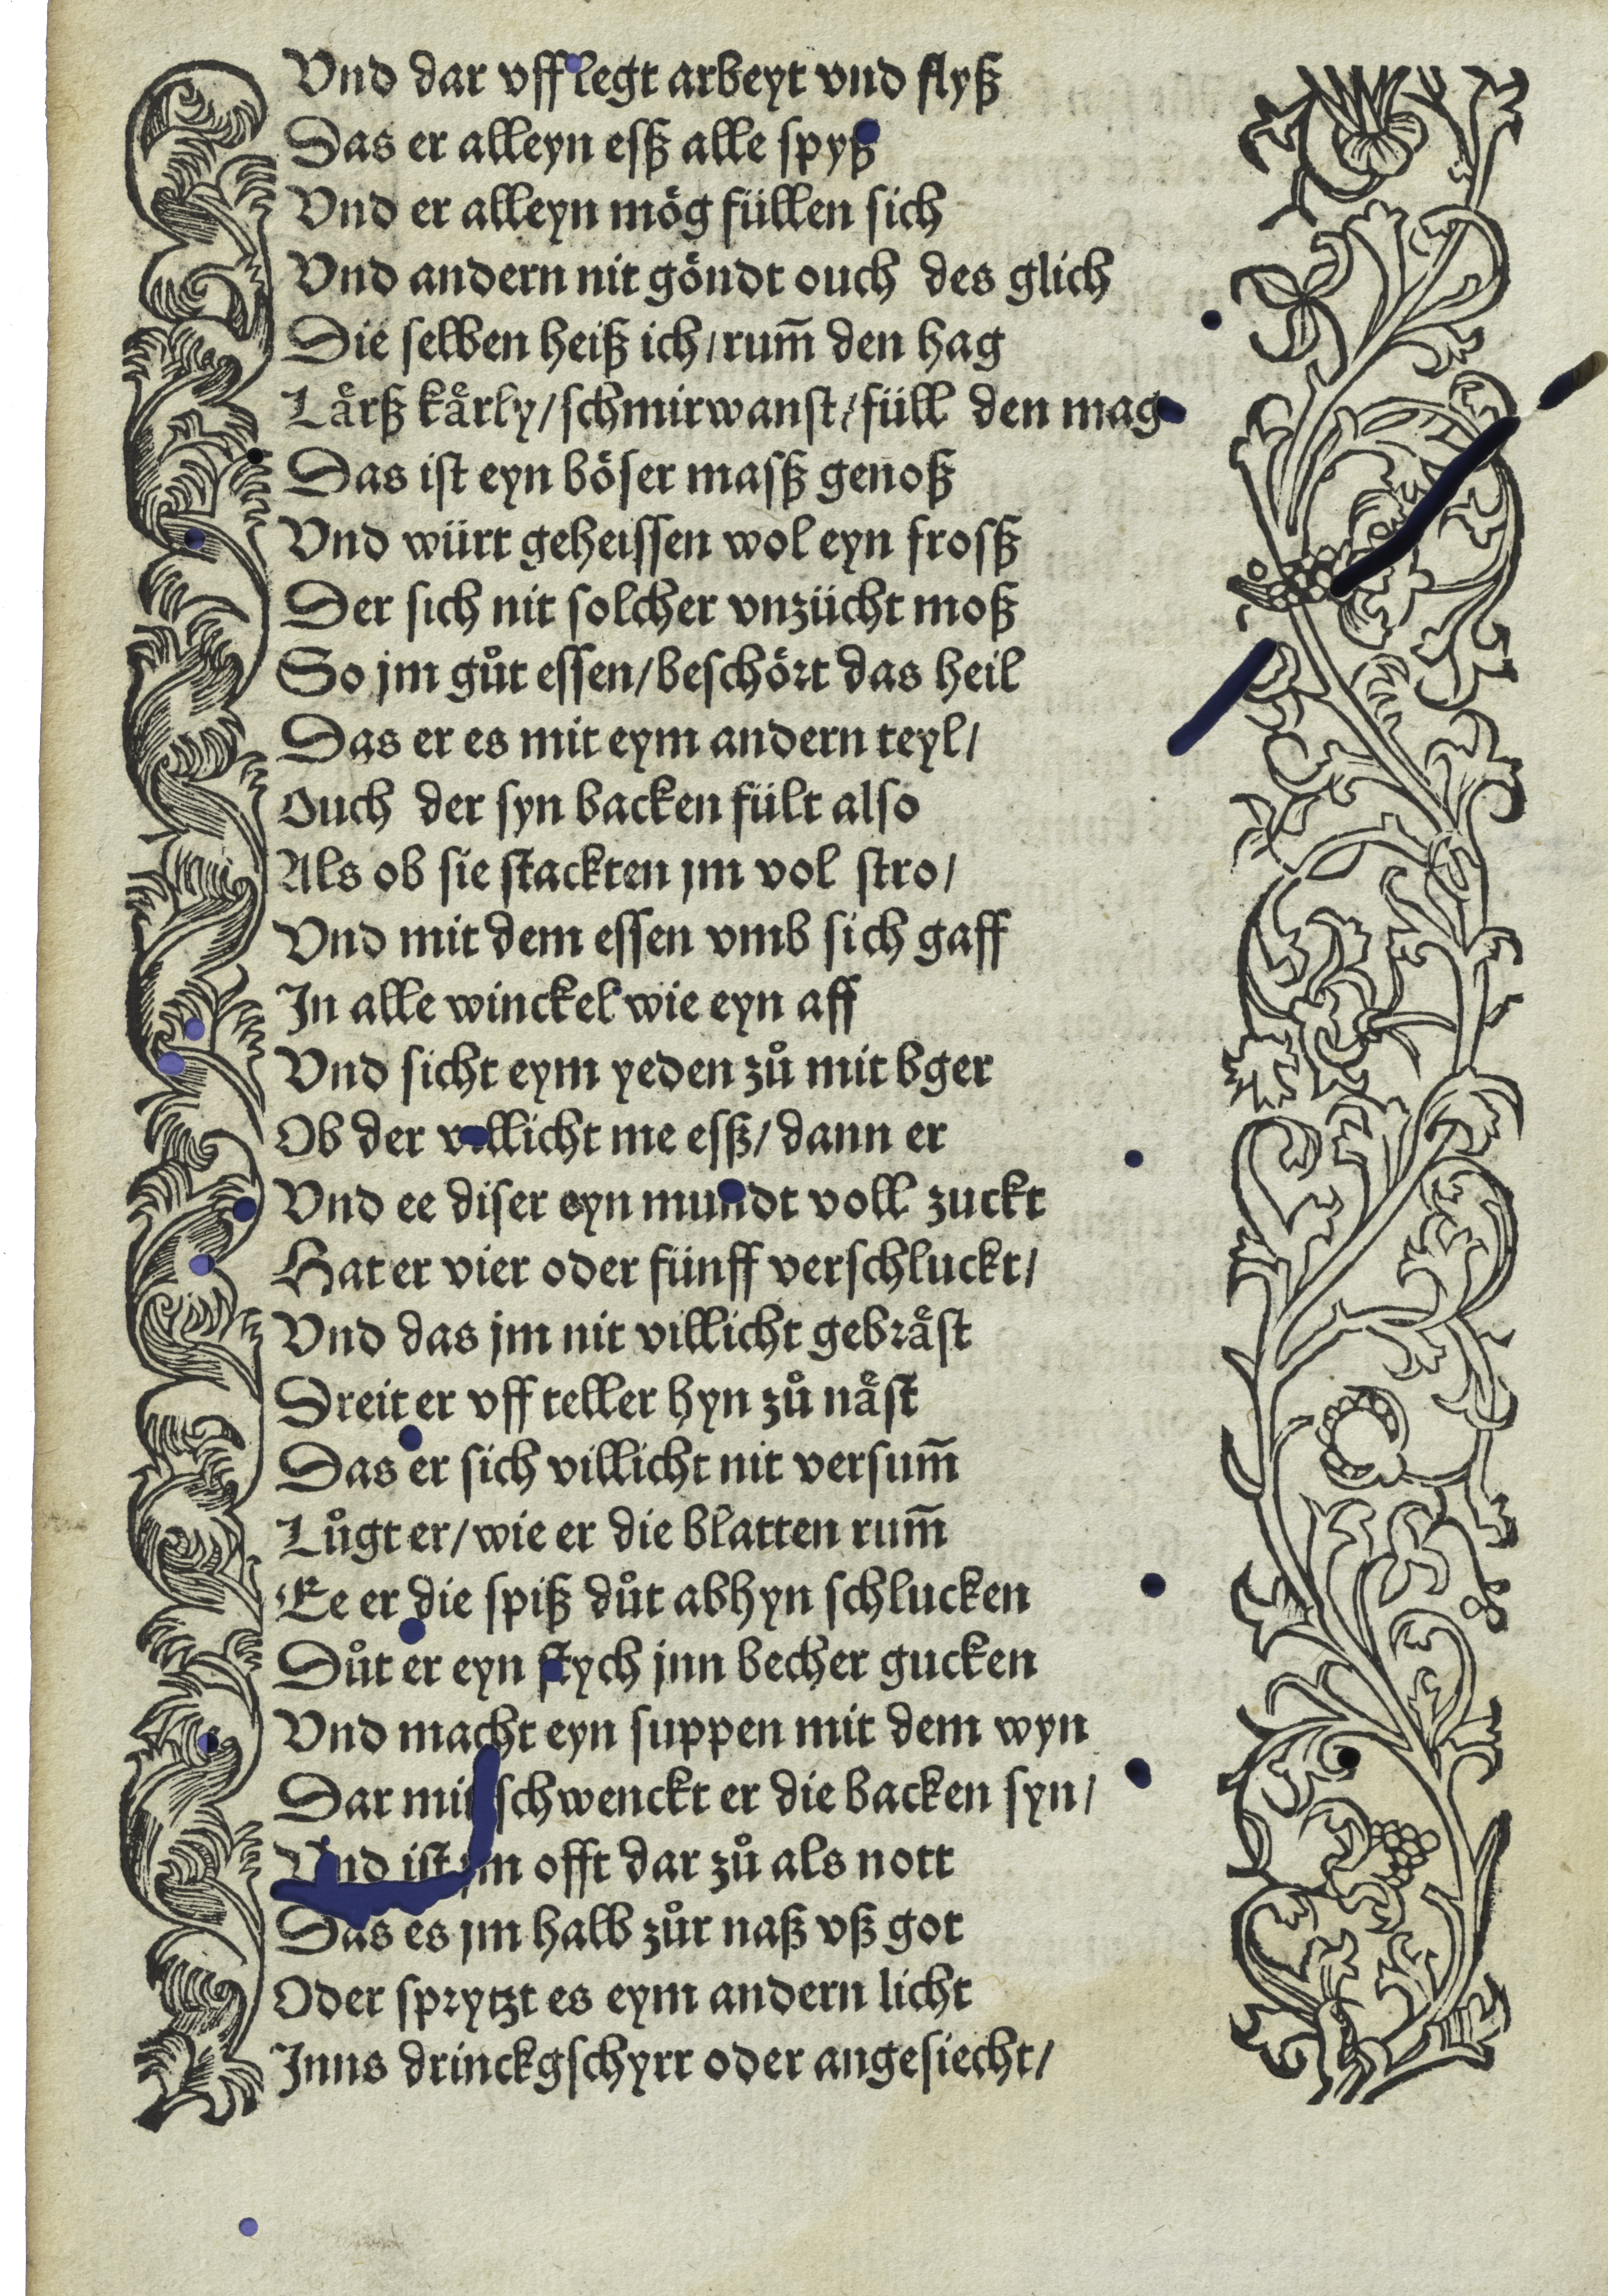 Vnd dar vff legt arbeyt vnd flyß
Das er alleyn esß alle spyß
Vnd er alleyn mög füllen sich
Vnd andern nit göndt ouch des glich
Die selben heiß ich / rum̄ den hag
Lårß kårly / schmirwanst / füll den mag
Das ist eyn böser masß genoß
Vnd würt geheissen wol eyn frosß
Der sich nit solcher vnzücht moß
So jm gůt essen / beschört das heil
Das er es mit eym andern teyl /
Ouch der syn backen fült also
Als ob sie stackten jm vol stro /
Vnd mit dem essen vmb sich gaff
In alle winckel wie eyn aff
Vnd sicht eym yeden zů mit bger
Ob der villicht me esß / dann er
Vnd ee diser eyn mundt voll zuckt
Hat er vier oder fünff verschluckt /
Vnd das jm nit villicht gebråst
Dreit er vff teller hyn zů nåst
Das er sich villicht nit versum̄
Lůgt er / wie er die blatten rum̄
Ee er die spiß důt abhyn schlucken
Důt er eyn stych jnn becher gucken
Vnd macht eyn suppen mit dem wyn
Dar mit schwenckt er die backen syn /
Vnd ist jm offt dar zů als nott
Das es jm halb zůr naß vß got
Oder sprytzt es eym andern licht
Inns drinckgschyrr oder angesiecht /